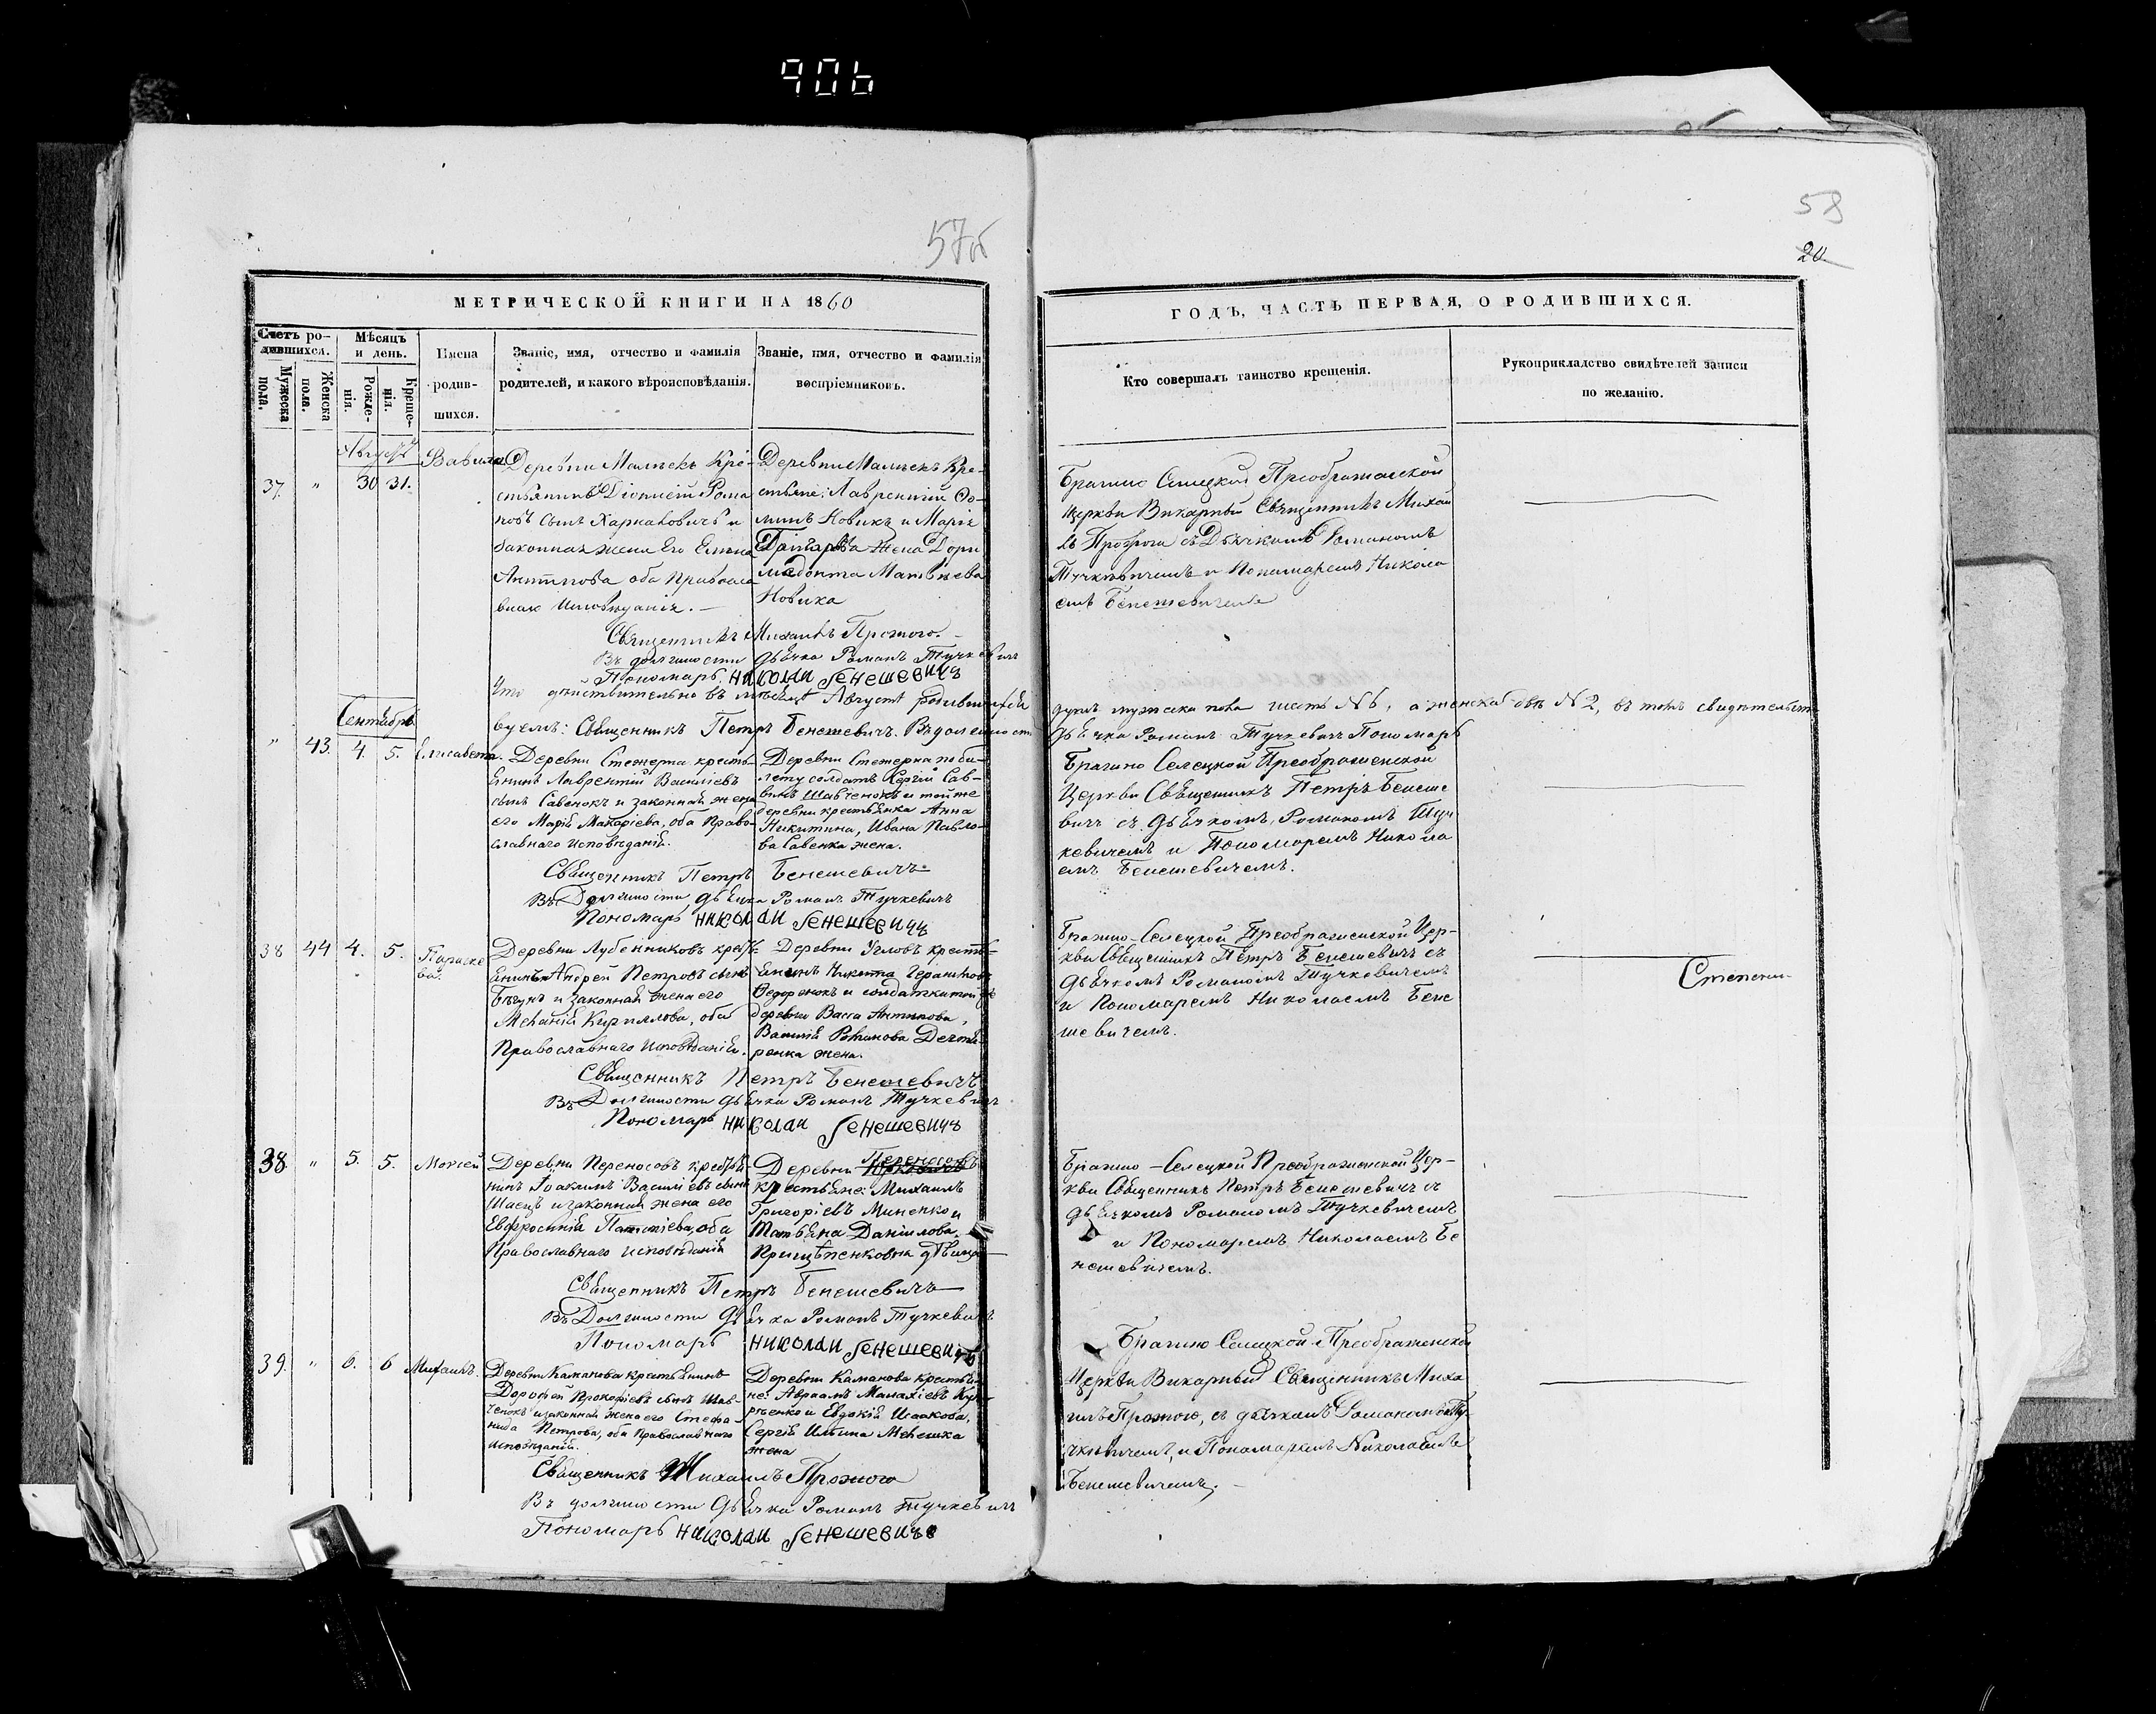 906
57об
58
20
МЕТРИЧЕСКОЙ КНИГИ НА 1860
ГОДЪ, ЧАСТЬ ПЕРВАЯ, О РОДИВШИХСЯ.
Счетъ ро-
дившихся.
Мужеска
пола.
Женска
пола.
Мѣсяцъ
и день.
Рожде-
нія.
Креще-
нія.
Имена
родив-
шихся.
Званіе, имя, отчество и фамилія
родителей, и какого вѣроисповѣданія.
Званіе, имя, отчество и фамилія
воспріемниковъ.
Кто совершалъ таинство крещенія.
Рукоприкладство свидѣтелей записи
по желанію.
Августъ
37. " 30 31.
Вавила
Деревни Малѣекъ Кре-
стьянинъ Діонисій Рома
новъ сынъ Харкаковичъ и
законная жена Его Елена
Антипова оба Правосла
вная исповѣданія.
Деревни Малѣекъ Кре-
стьяне: Лаврентій Фо-
минъ Новикъ и Марія
Григорьева жена Дори
медонта Матвѣева
Новика
Брагино Селецкой Преображенской
Церкви Викарный Священникъ Михаи
лъ Прозога съ Дьячкомъ Романомъ
Тучкѣвичемъ и Пономаремъ Никола
емъ Бенешевичемъ
Священникъ Михаилъ Прозого.
Въ должности дьячка Романъ Тучкевичъ
Пономарь Николаи Бенешевичъ
Что дѣйствительно въ мѣсяцѣ Августѣ родившихся
душъ мужска пола шесть №6, а женска двѣ №2, въ томъ свидѣтельст
вуемъ: Священникъ Петръ Бенешевичъ. Въ должности
дьячка Романъ Тучкевичъ Пономарь
Сентябрь
" 43. 4. 5.
Елисавета.
Деревни Стежерка кресть-
янинъ Лаврентій Василіевъ
сынъ Савенокъ и законная жена
его Марія Макаріева, оба Право-
славнаго исповѣданія.
Деревни Стежерка по би-
лету солдатъ Сергій Сав-
винъ Шавченокъ и тойже
деревни крестьянка Анна
Никитина, Ивана Павло-
ва Савенка жена.
Брагино Селецкой Преображенской
Церкви Священникъ Петръ Бенеше
вичъ съ дьячкомъ Романомъ Туч
кевичемъ и Пономаремъ Никола
емъ Бенешевичемъ.
Священникъ Петръ Бенешевичъ
Въ Должности дьячка Романъ Тучкевичъ
Пономарь Николаи Бенешевичъ
38 44 4. 5.
Параске
ва.
Деревни Лубенниковъ кресть-
янинъ Андрей Петровъ сынъ
Бѣгунъ и законная жена его
Меланія Кириллова, оба
Православнаго исповѣданія.
Деревни Угловъ кресть-
янинъ Никита Герасимовъ
Федоренокъ и солдатка той же
деревни Васса Антипова,
жена.
Брагино-Селецкой Преображенской Цер-
кви Священникъ Петръ Бенешевичъ съ
дьячкомъ Романомъ Тучкевичемъ
и Пономаремъ Николаемъ Бене
шевичемъ.
Священникъ Петръ Бенешевичъ
Въ Должности дьячка Романъ Тучкевичъ
Пономарь Николаи Бенешевичъ
38. " 5. 5.
Моисей
Деревни Переносовъ крестья-
нинъ Іоакимъ Василіевъ сынъ
Шаецъ и законная жена его
Евфросинія оба
Православнаго исповѣданія
Деревни Переносовъ
крестьяне: Михаилъ
Григоріевъ Миненко и
Татьяна Даніилова
Прищѣпенковна дѣвица
Брагино-Селецкой Преображенской Цер-
кви Священникъ Петръ Бенешевичъ съ
дьячкомъ Романомъ Тучкевичемъ
и Пономаремъ Николаемъ Бе
нешевичемъ.
Священникъ Петръ Бенешевичъ
Въ Должности дьячка Романъ Тучкевичъ
Пономарь Николаи Бенешевичъ
39. " 6. 6
Михаилъ.
Деревни Каманова крестьянинъ
Дорофей Прокофіевъ сынъ Шав-
ченокъ и законная жена его Стефа-
нида Петрова, оба Православнаго
исповѣданія.
Деревни Каманова крестья-
не: Авраамъ Малахіевъ
и Евдокія Исакова,
Сергія Илина Мелешка
жена
Брагино Селецкой Преображенской
Церкви Викарный Священникъ Миха
илъ Прозого, съ дьячкомъ Романомъ Ту-
чкѣвичемъ, и Пономаремъ Николаемъ
Бенешевичемъ.
Священникъ Михаилъ Прозого
Въ должности Дьячка Романъ Тучкевичъ
Пономарь Николаи Бенешевичъ